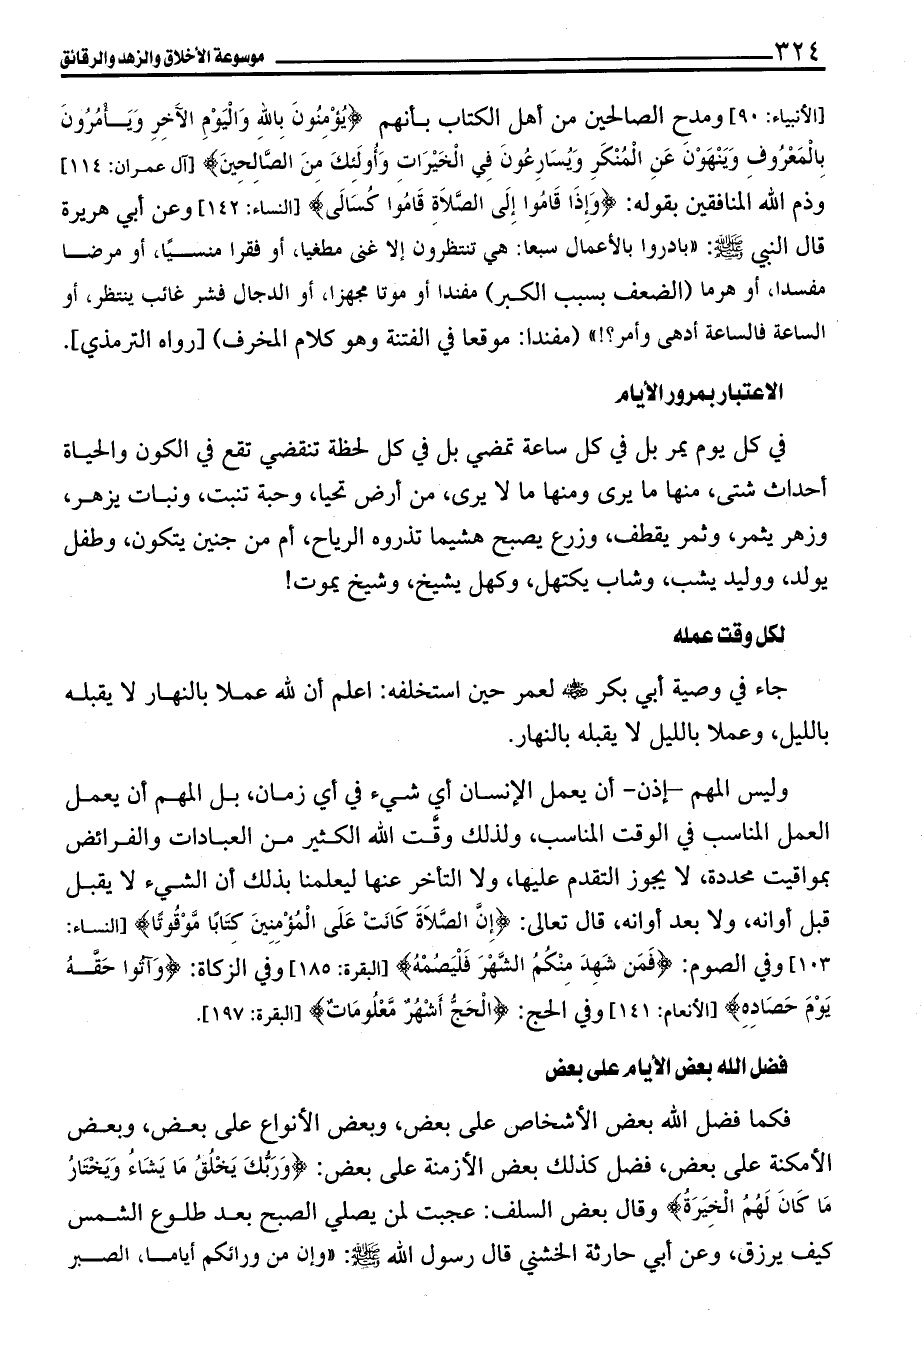 ٣٢٤ موسوعة الأخلاق والزهد والرقائق
[الأنبياء: ٩٠] ومدح الصالحين من أهل الكتاب بأنهم ﴿يُؤْمِنُونَ بِاللهِ وَالْيَوْمِ الآخِرِ وَيَأْمُرُونَ
بِالْمَعْرُوفِ وَيَنْهَوْنَ عَنِ الْمُنْكَرِ وَيُسَارِعُونَ فِي الْخَيْرَاتِ وَأُولَئِكَ مِنَ الصَّالِحِينَ﴾ [آل عمران: ١١٤]
وذم الله المنافقين بقوله: ﴿وَإِذَا قَامُوا إِلَى الصَّلاَةِ قَامُوا كُسَالَى﴾ [النساء: ١٤٢] وعن أبي هريرة
قال النبي ﷺ: «بادروا بالأعمال سبعا: هي تنتظرون إلا غنى مطغيا، أو فقرا منسيًا، أو مرضا
مفسدا، أو هرما (الضعف بسبب الكبر) مفندا أو موتا مجهزا، أو الدجال فشر غائب ينتظر، أو
الساعة فالساعة أدهى وأمر؟!» (مفندا: موقعا في الفتنة وهو كلام المخرف) [رواه الترمذي].
الاعتبار بمرور الأيام
في كل يوم يمر بل في كل ساعة تمضي بل في كل لحظة تنقضي تقع في الكون والحياة
أحداث شتى، منها ما يرى ومنها ما لا يرى، من أرض تحيا، وحبة تنبت، ونبات يزهر،
وزهر يثمر، وثمر يقطف، وزرع يصبح هشيما تذروه الرياح، أم من جنين يتكون، وطفل
يولد، ووليد يشب، وشاب يكتهل، وكهل يشيخ، وشيخ يموت!
لكل وقت عمله
جاء في وصية أبي بكر ﷺ لعمر حين استخلفه: اعلم أن لله عملا بالنهار لا يقبله
بالليل، وعملا بالليل لا يقبله بالنهار.
وليس المهم -إذن- أن يعمل الإنسان أي شيء في أي زمان، بل المهم أن يعمل
العمل المناسب في الوقت المناسب، ولذلك وقَّت الله الكثير من العبادات والفرائض
بمواقيت محددة، لا يجوز التقدم عليها، ولا التأخر عنها ليعلمنا بذلك أن الشيء لا يقبل
قبل أوانه، ولا بعد أوانه، قال تعالى: ﴿إِنَّ الصَّلاَةَ كَانَتْ عَلَى الْمُؤْمِنِينَ كِتَابًا مَّوْقُوتًا﴾ [النساء:
١٠٣] وفي الصوم: ﴿فَمَن شَهِدَ مِنْكُمُ الشَّهْرَ فَلْيَصُمْهُ﴾ [البقرة: ١٨٥] وفي الزكاة: ﴿وَآتُوا حَقَّهُ
يَوْمَ حَصَادِهِ﴾ [الأنعام: ١٤١] وفي الحج: ﴿الْحَجُّ أَشْهُرٌ مَّعْلُومَاتٌ﴾ [البقرة: ١٩٧].
فضل الله بعض الأيام على بعض
فكما فضل الله بعض الأشخاص على بعض، وبعض الأنواع على بعض، وبعض
الأمكنة على بعض، فضل كذلك بعض الأزمنة على بعض: ﴿وَرَبُّكَ يَخْلُقُ مَا يَشَاءُ وَيَخْتَارُ
مَا كَانَ لَهُمُ الْخِيَرَةُ﴾ وقال بعض السلف: عجبت لمن يصلي الصبح بعد طلوع الشمس
كيف يرزق، وعن أبي حارثة الخشني قال رسول الله ﷺ: «وإن من ورائكم أياما، الصبر